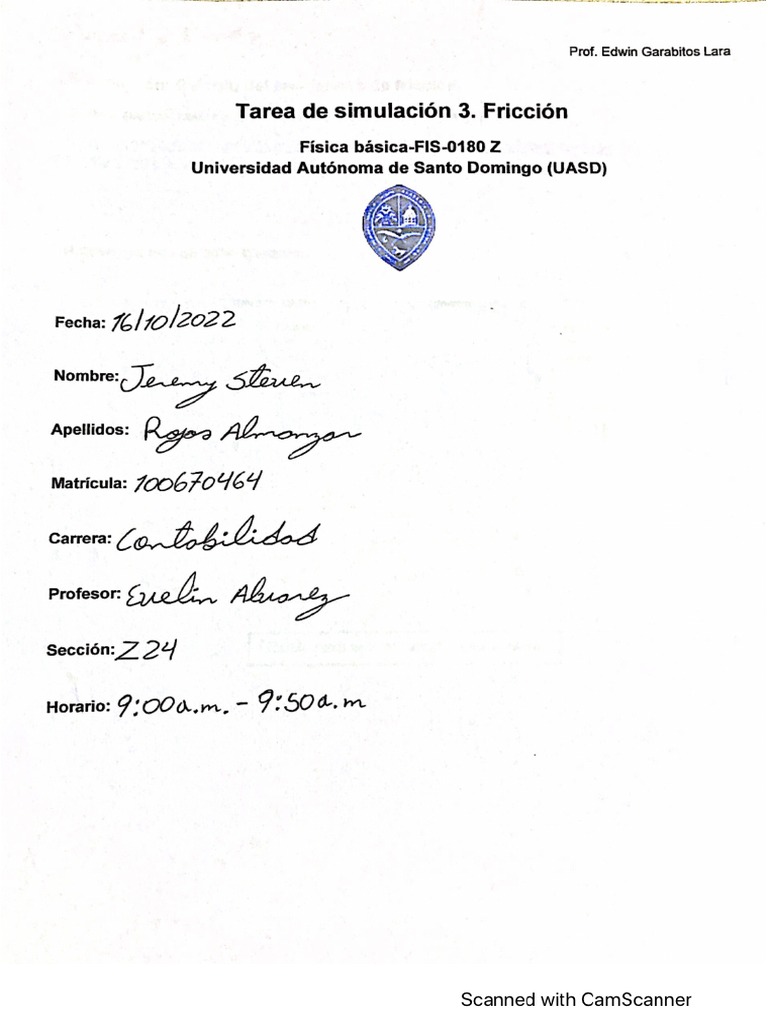 Prof. Edwin Garabitos Lara
Tarea de simulación 3. Fricción
Física básica-FIS-0180 Z
Universidad Autónoma de Santo Domingo (UASD)
Fecha: 16/10/2022
Nombre: Jeremy Steven
Apellidos: Rojas Almonzar
Matrícula: 100670464
Carrera: Contabilidad
Profesor: Evelin Alvarez
Sección: Z24
Horario: 9:00a.m. - 9:50a.m
Scanned with CamScanner